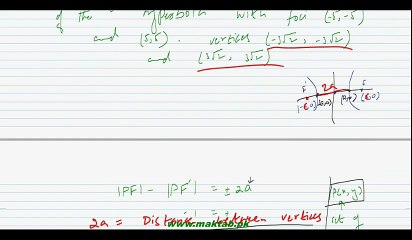 of the hyperbola with foci (-5,-5)
and (5,5). vertices (-3√2, -3√2)
and (3√2, 3√2)
F' 2a F
(-c,0) (-a,0) (a,0) (c,0)
|PF| - |PF'| = ± 2a
P(x,y)
2a = Distance between vertices
set of
www.maktab.pk